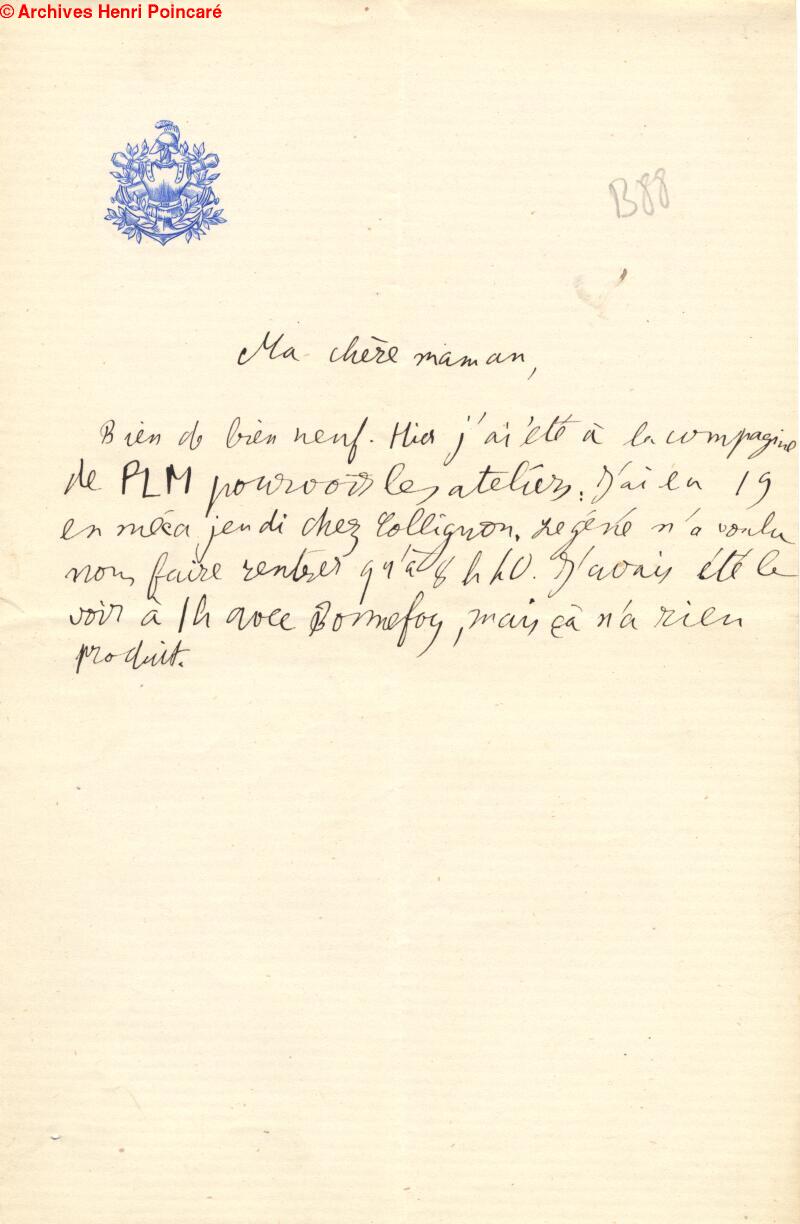 © Archives Henri Poincaré
B88
Ma chère maman,
Rien de bien neuf. Hier j'ai été à la compagnie
de PLM pour voir les ateliers. J'ai eu 19
en méca jeudi chez Collignon. Le géné n'a voulu
nous faire rentrer qu'à 8 h 40. J'avais été le
voir à 1h avec Bonnefoy, mais çà n'a rien
produit.